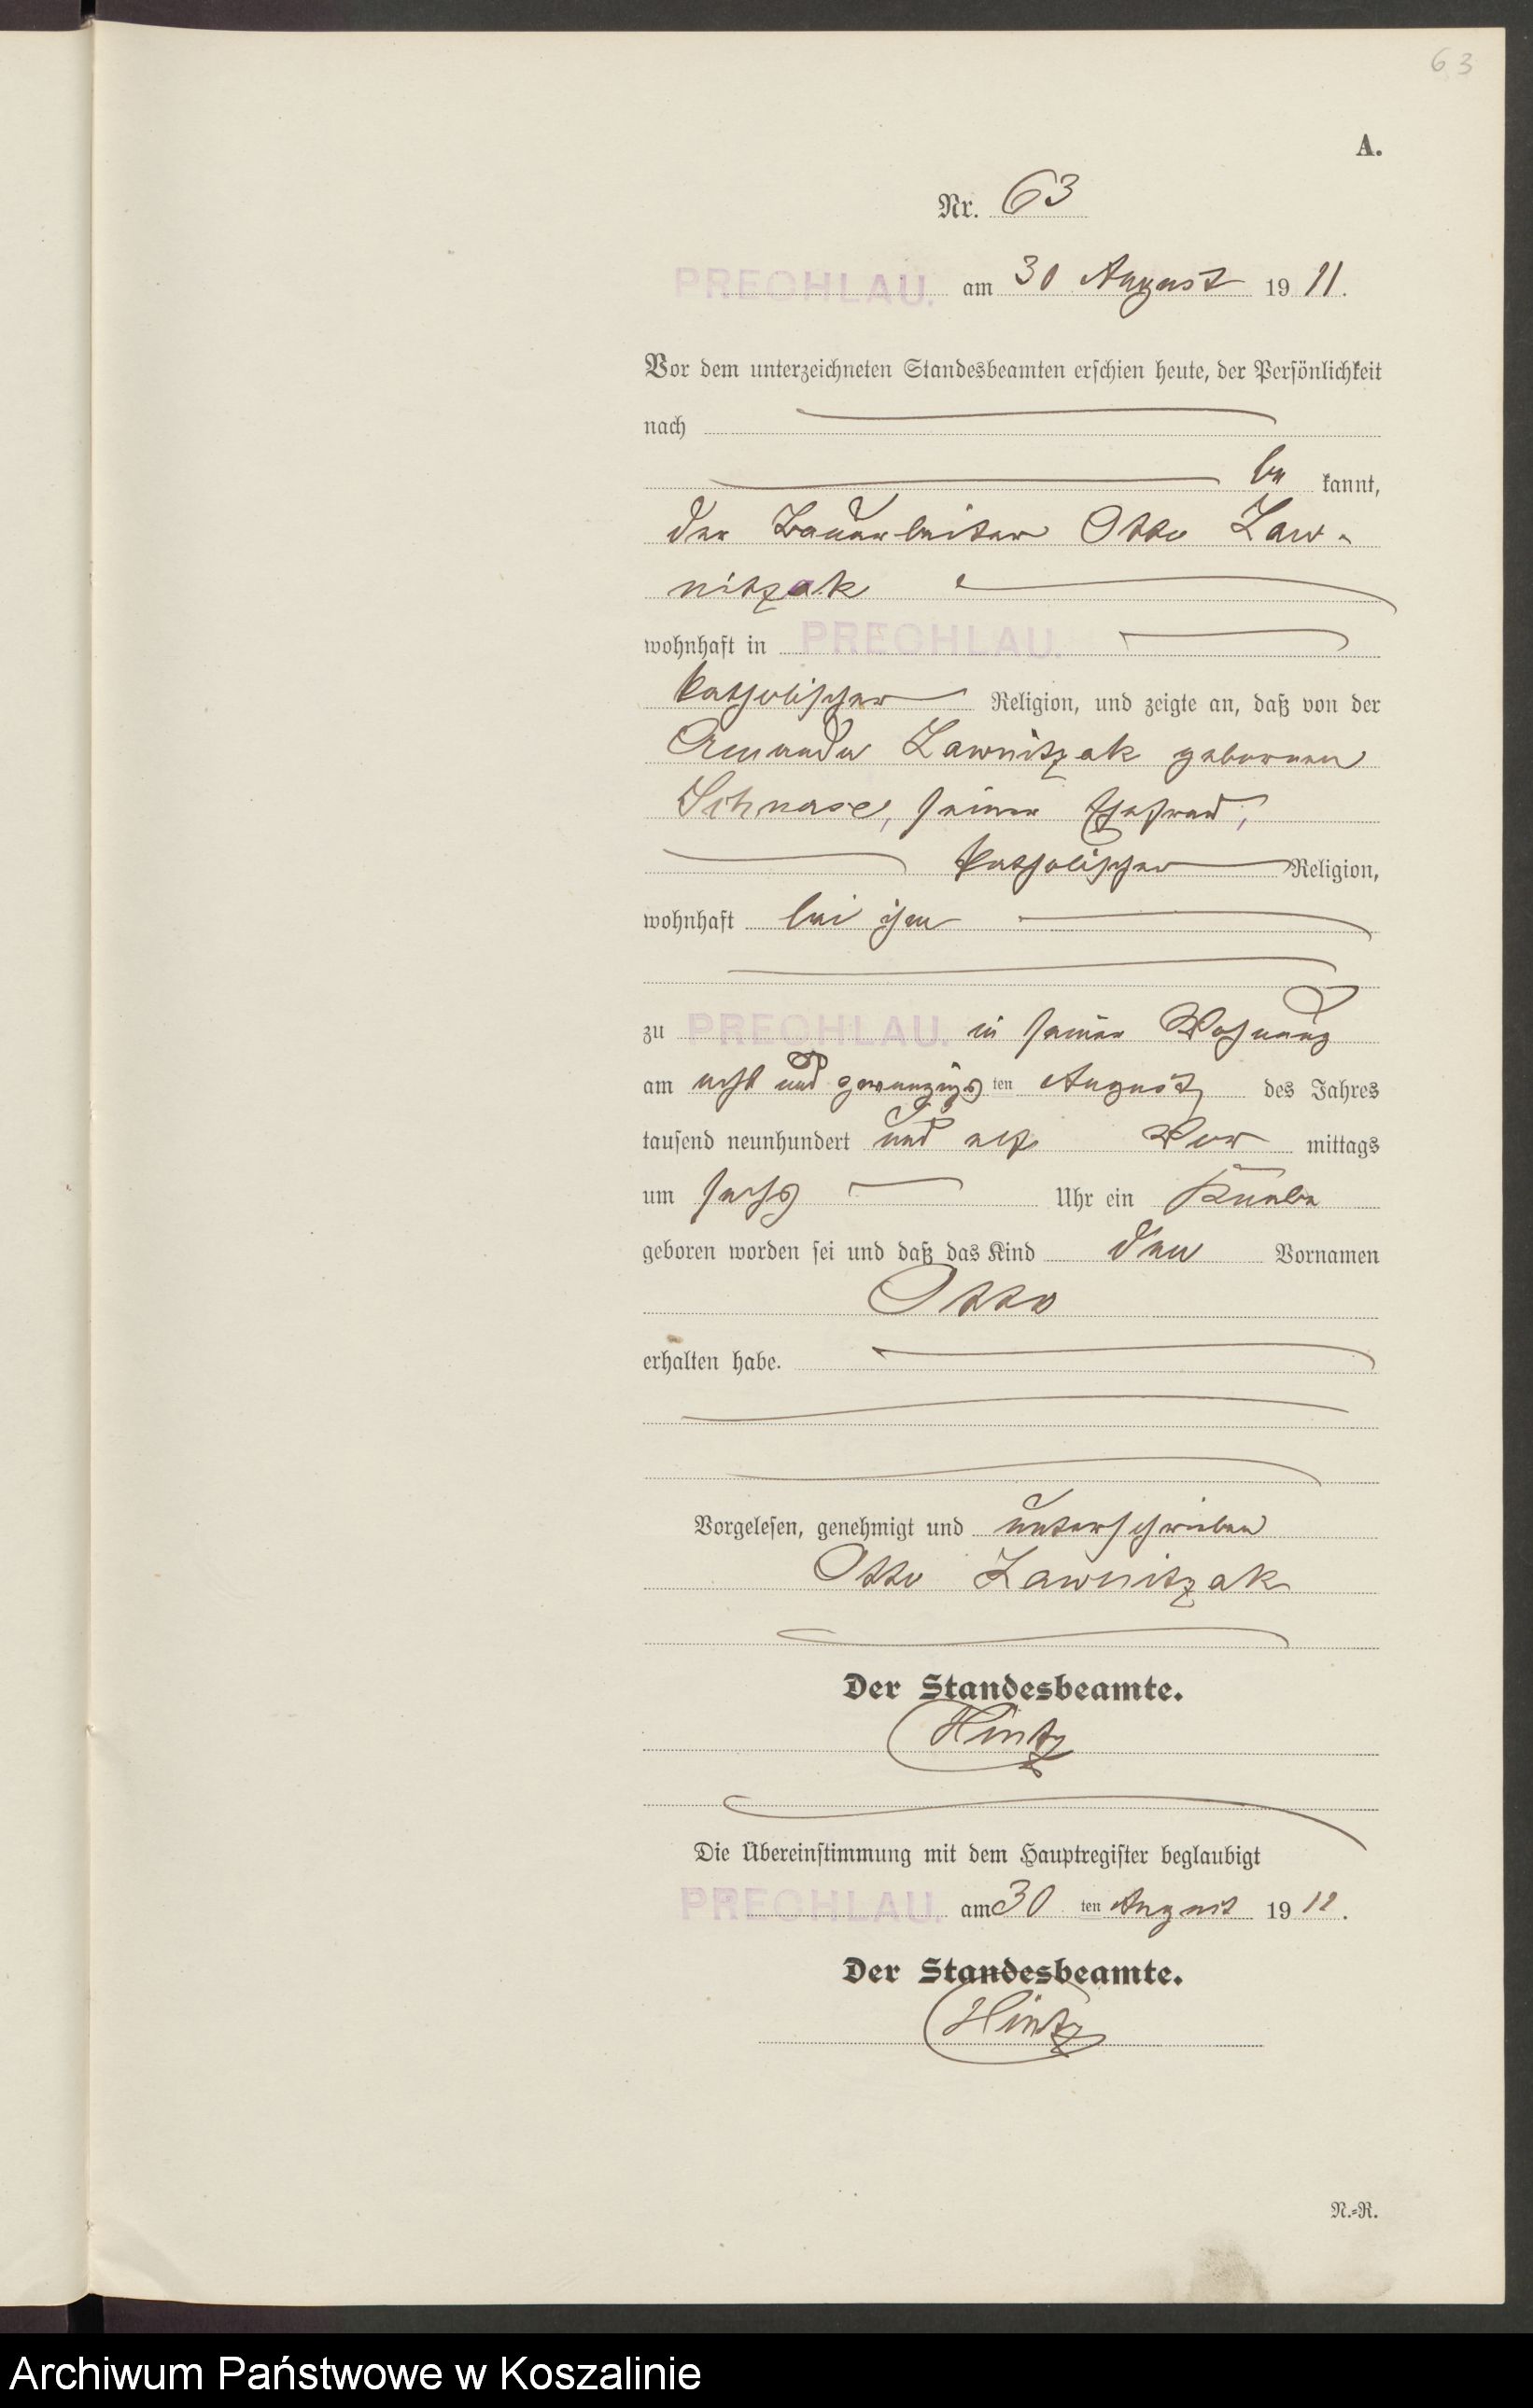 63
A.
Nr. 63
PRECHLAU. am 30 August 19 11.
Vor dem unterzeichneten Standesbeamten erschien heute, der Persönlichkeit
nach
be kannt,
der Bauarbeiter Otto Law-
nitzak
wohnhaft in PRECHLAU.
katholischer Religion, und zeigte an, daß von der
Amanda Lawnitzak geborenen
Schnase, seiner Ehefrau,
katholischer Religion,
wohnhaft bei ihm
zu PRECHLAU. in seiner Wohnung
am acht und zwanzigs ten August des Jahres
tausend neunhundert und elf Vor mittags
um sechs Uhr ein Knabe
geboren worden sei und daß das Kind den Vornamen
Otto
erhalten habe.
Vorgelesen, genehmigt und unterschrieben
Otto Lawnitzak
Der Standesbeamte.
Hintz
Die Übereinstimmung mit dem Hauptregister beglaubigt
PRECHLAU. am 30 ten August 19 11.
Der Standesbeamte.
Hintz
N.=R.
Archiwum Państwowe w Koszalinie